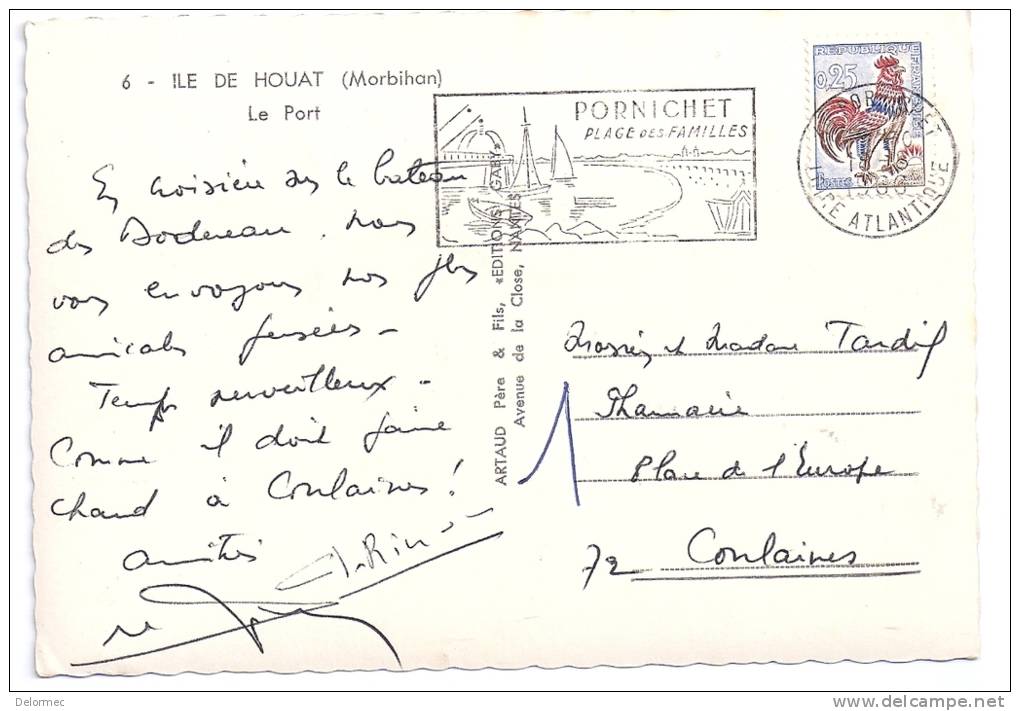 6 - ILE DE HOUAT (Morbihan)
Le Port
En croisière sur le bateau
des Bodereau, nous
vous envoyons nos plus
amicales pensées -
Temps merveilleux -
Comme il doit faire
chaud à Coulaines !
Amitiés
ARTAUD Père & Fils, «EDITIONS GABY»
Avenue de la Close, NANTES
PORNICHET
PLAGE DES FAMILLES
REPUBLIQUE FRANÇAISE
0,25
POSTES
PORNICHET
LOIRE ATLANTIQUE
Monsieur et Madame Tardif
Pharmacie
Place de l'Europe
72 Coulaines
1
Delormec
www.delcampe.net